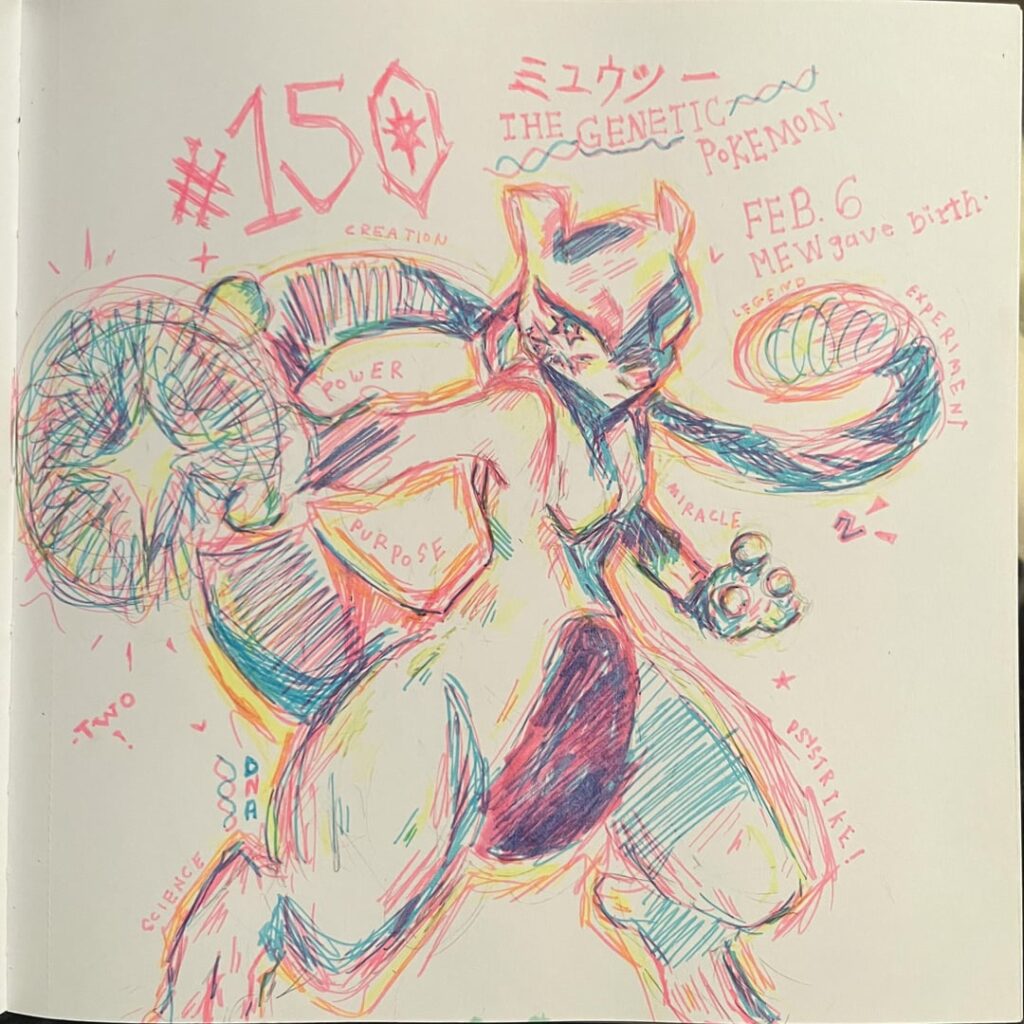 #150
ミュウツー
THE GENETIC
POKEMON.
FEB. 6
MEW gave birth.
CREATION
LEGEND
EXPERIMENT
POWER
MIRACLE
PURPOSE
2
TWO
PSYSTRIKE!
DNA
SCIENCE